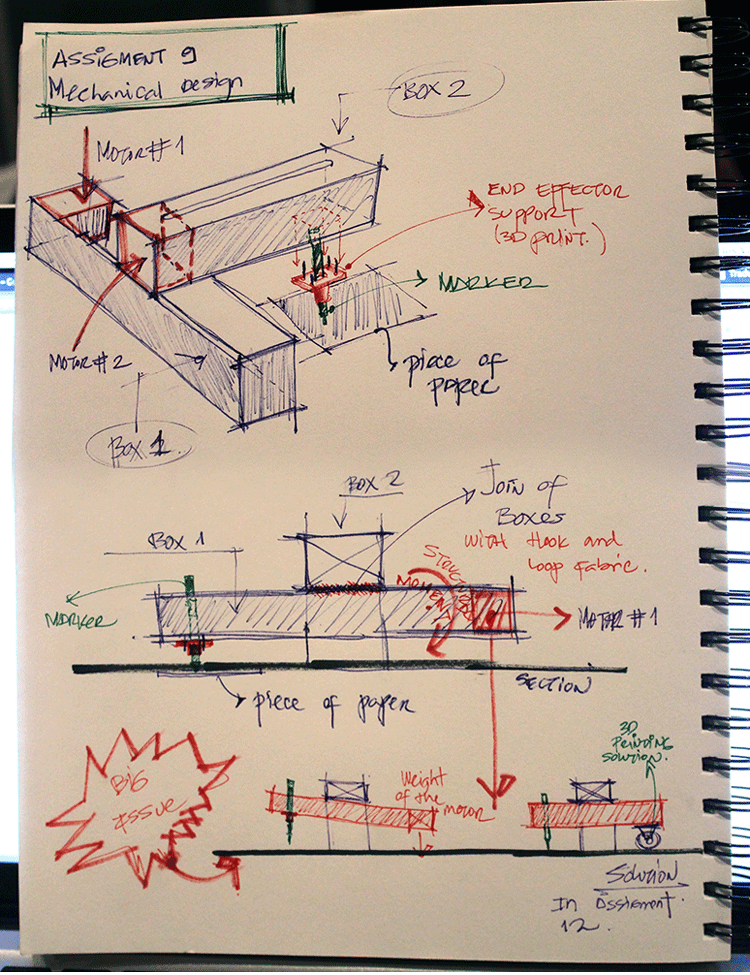 ASSIGMENT 9
Mechanical Design
BOX 2
MOTOR #1
END EFFECTOR
SUPPORT
(3D PRINT.)
MARKER
MOTOR #2
piece of
PAPER
BOX 1.
BOX 2
JOIN OF
BOXES
WITH Hook and
Loop FABRIC.
BOX 1
STRUCTURAL
MOMENT
MARKER
MOTOR #1
SECTION
piece of paper
3D
PRINTING
SOLUTION.
BIG
ISSUE
Weight
of the
MOTOR
SOLUTION
IN ASSIGMENT.
12.